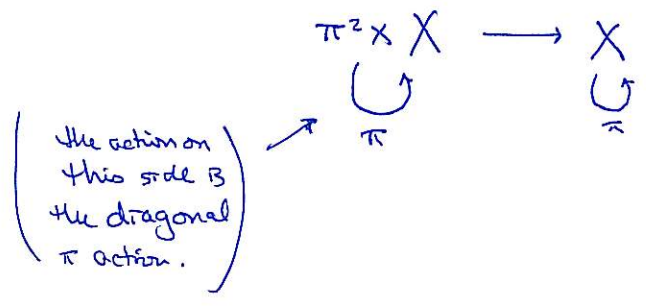 π² × X → X
π π
the action on
this side is
the diagonal
π action.